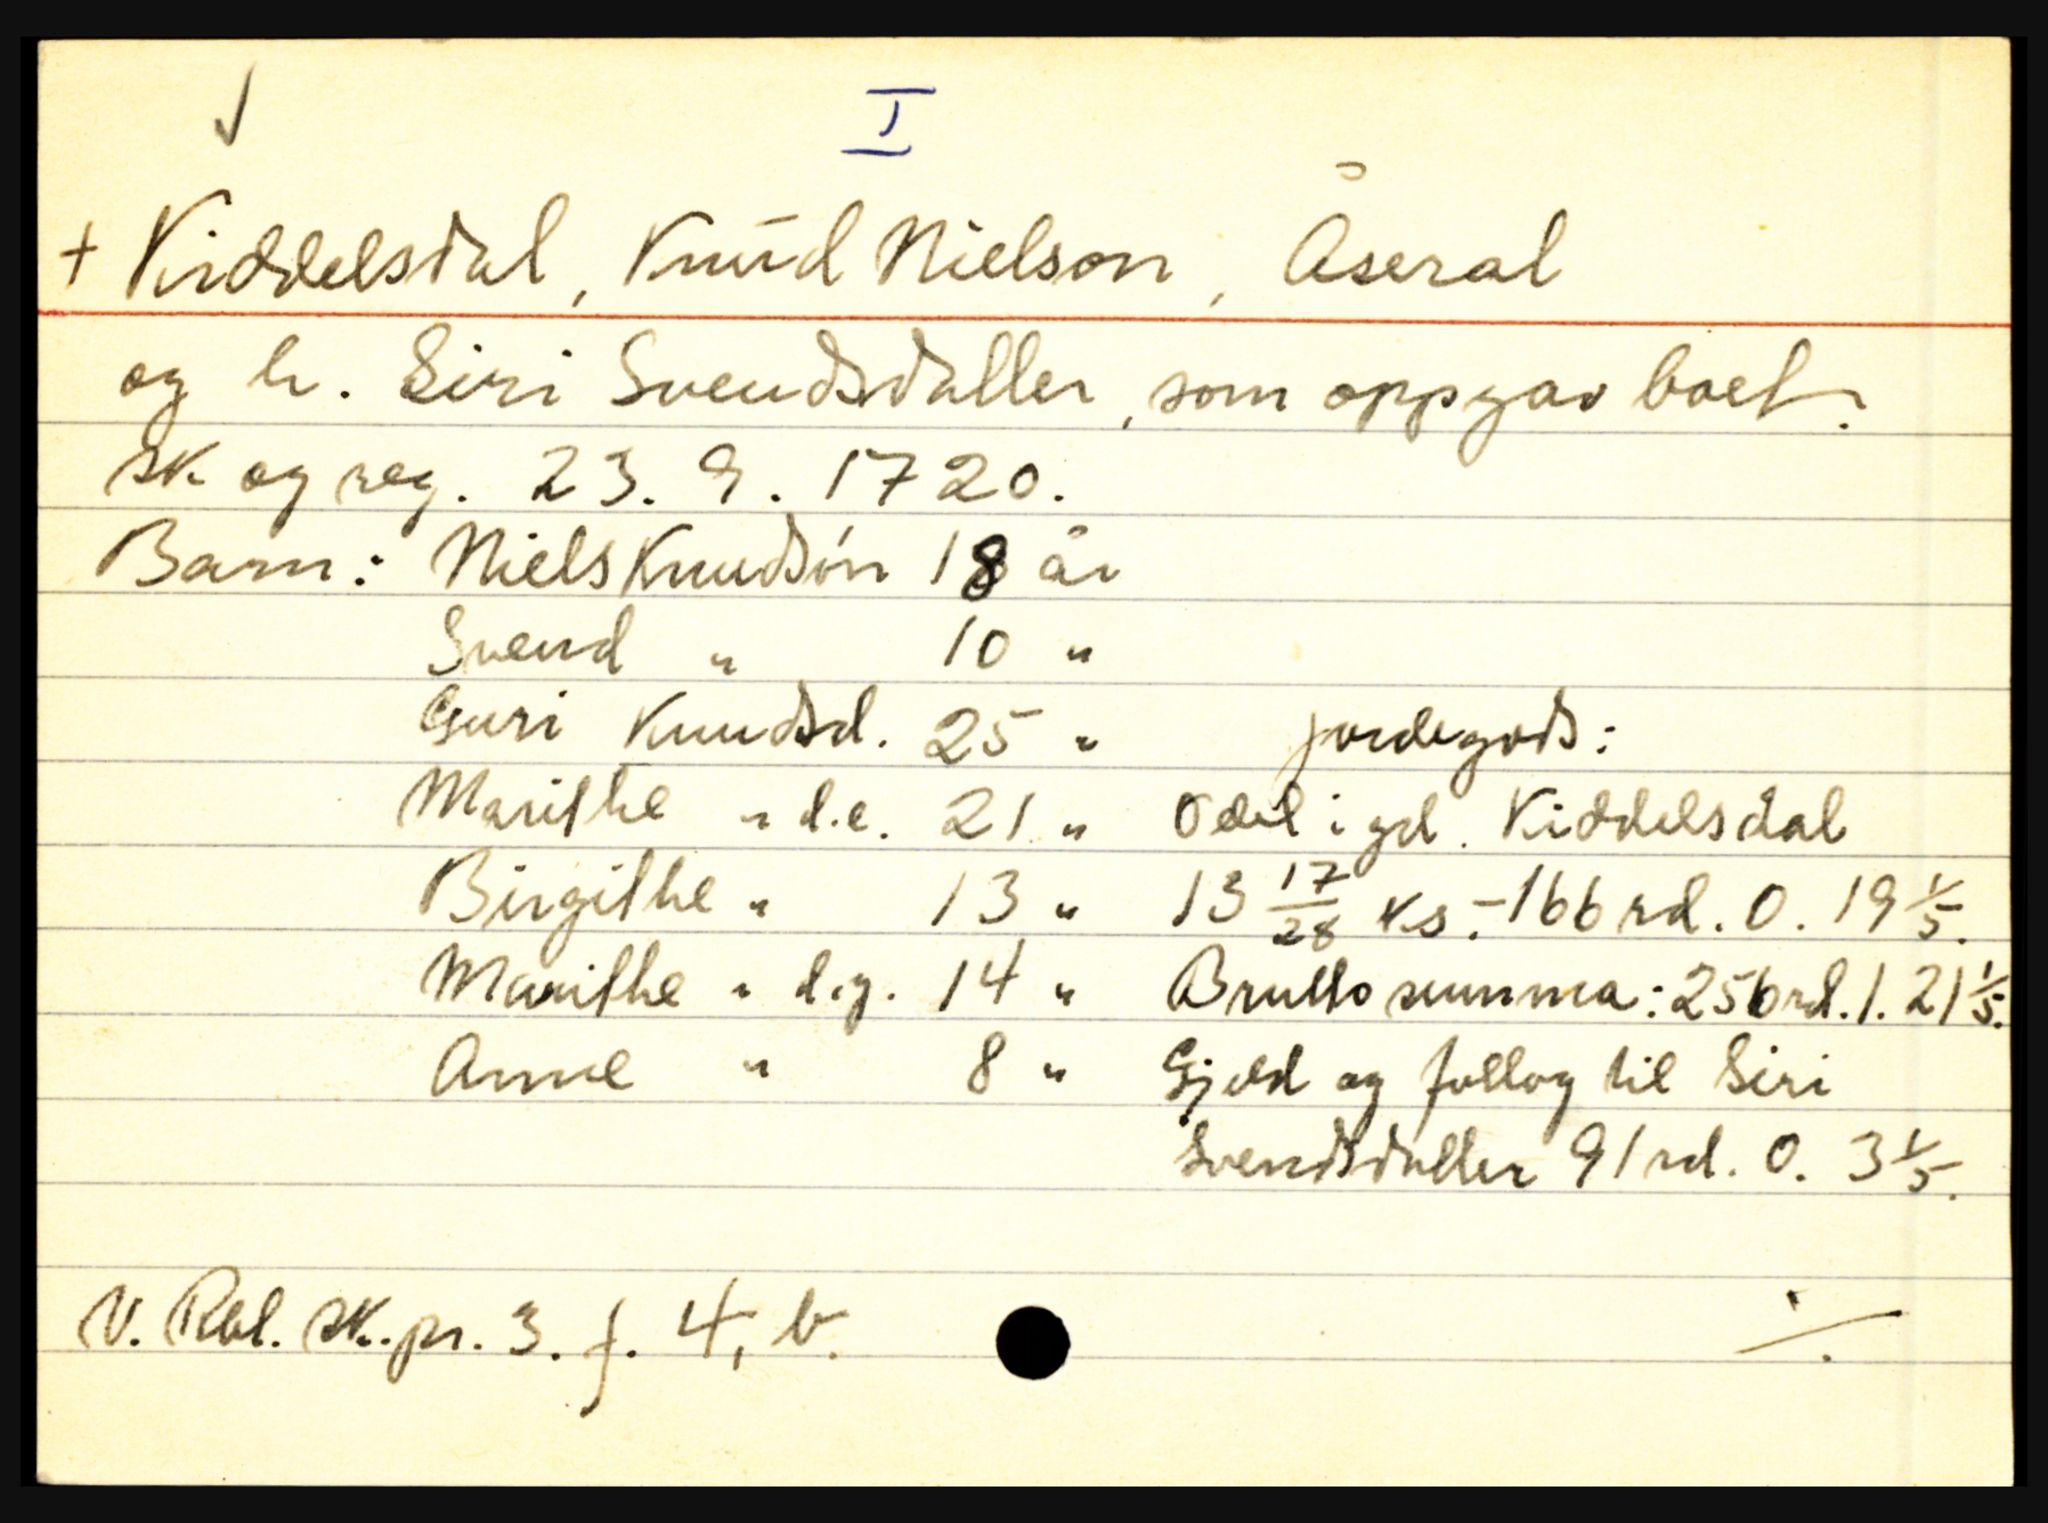 I
+ Kiddelsdal, Knud Nielson, Åseral
og h. Siri Svendsdatter, som oppgav boet.
sk og reg. 23. 9. 1720.
Barn: Niels Knudson 18 år
Svend " 10 "
Guri Knudsd. 25 " jordegods:
Marithe " d.e. 21 " Odel i gd. Kiddelsdal
Birgithe " 13 " 13 17/28 ks.- 166 rd. 0. 19 1/5.
Marithe " d.y. 14 " Brutto summa: 256 rd. 1. 21 1/5.
Anne " 8 " Gjeld og follog til Siri
Svendsdatter 91 rd. 0. 3 1/5.
N. Rbl. sk. pr. 3. f. 4, b. ./.